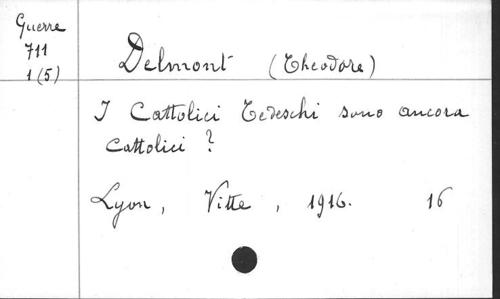 Guerre
711
1(5)
Delmont (Théodore)
I Cattolici Tedeschi sono ancora
cattolici ?
Lyon, Vitte, 1916. 16